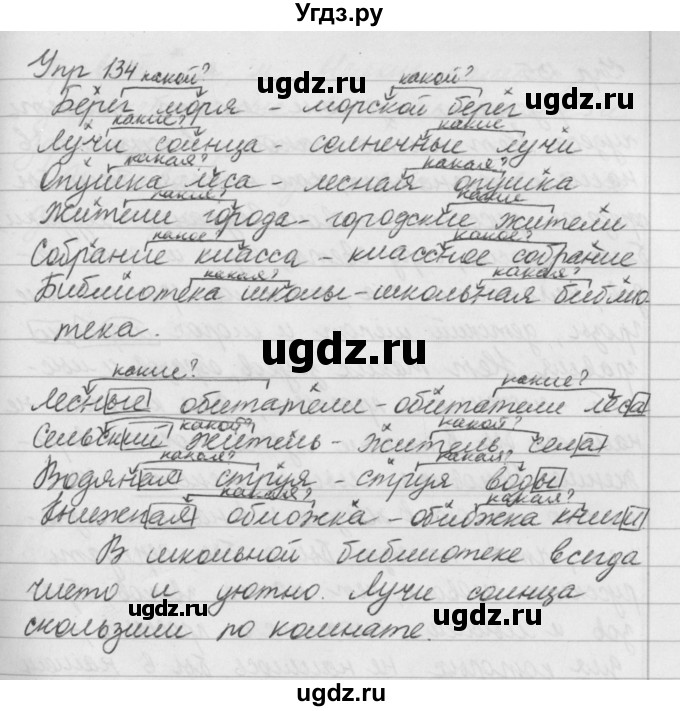 Угдз.ру
Упр 134 какой? какой?
Берег моря - морской берег
какие? какие
Лучи солнца - солнечные лучи
какая? какая?
Опушка леса - лесная опушка
какие? какие
Жители города - городские жители
какое? какое?
Собрание класса - классное собрание
какая? какая?
Библиотека школы - школьная библио-
тека.
какие? какие?
Лесные обитатели - обитатели леса
какой? какой?
Сельский житель - житель села
какая? какая?
Водяная струя - струя воды
какая? какая?
Книжная обложка - обложка книги
В школьной библиотеке всегда
чисто и уютно. Лучи солнца
скользили по комнате.
ugdz.ru
ugdz.ru
ugdz.ru
ugdz.ru
ugdz.ru
ugdz.ru
ugdz.ru
ugdz.ru
ugdz.ru